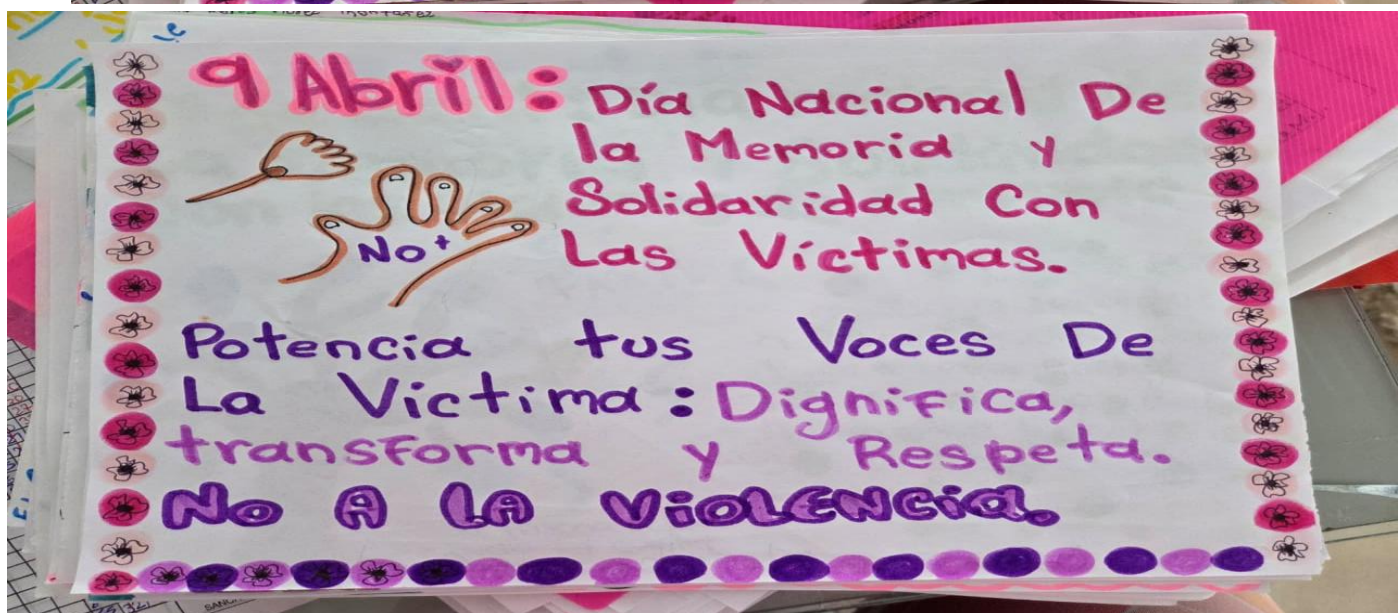 9 Abril: Día Nacional De
la Memoria y
Solidaridad Con
Las Víctimas.
No+
Potencia tus Voces De
La Victima: Dignifica,
transforma y Respeta.
No A LA VioLENCia.